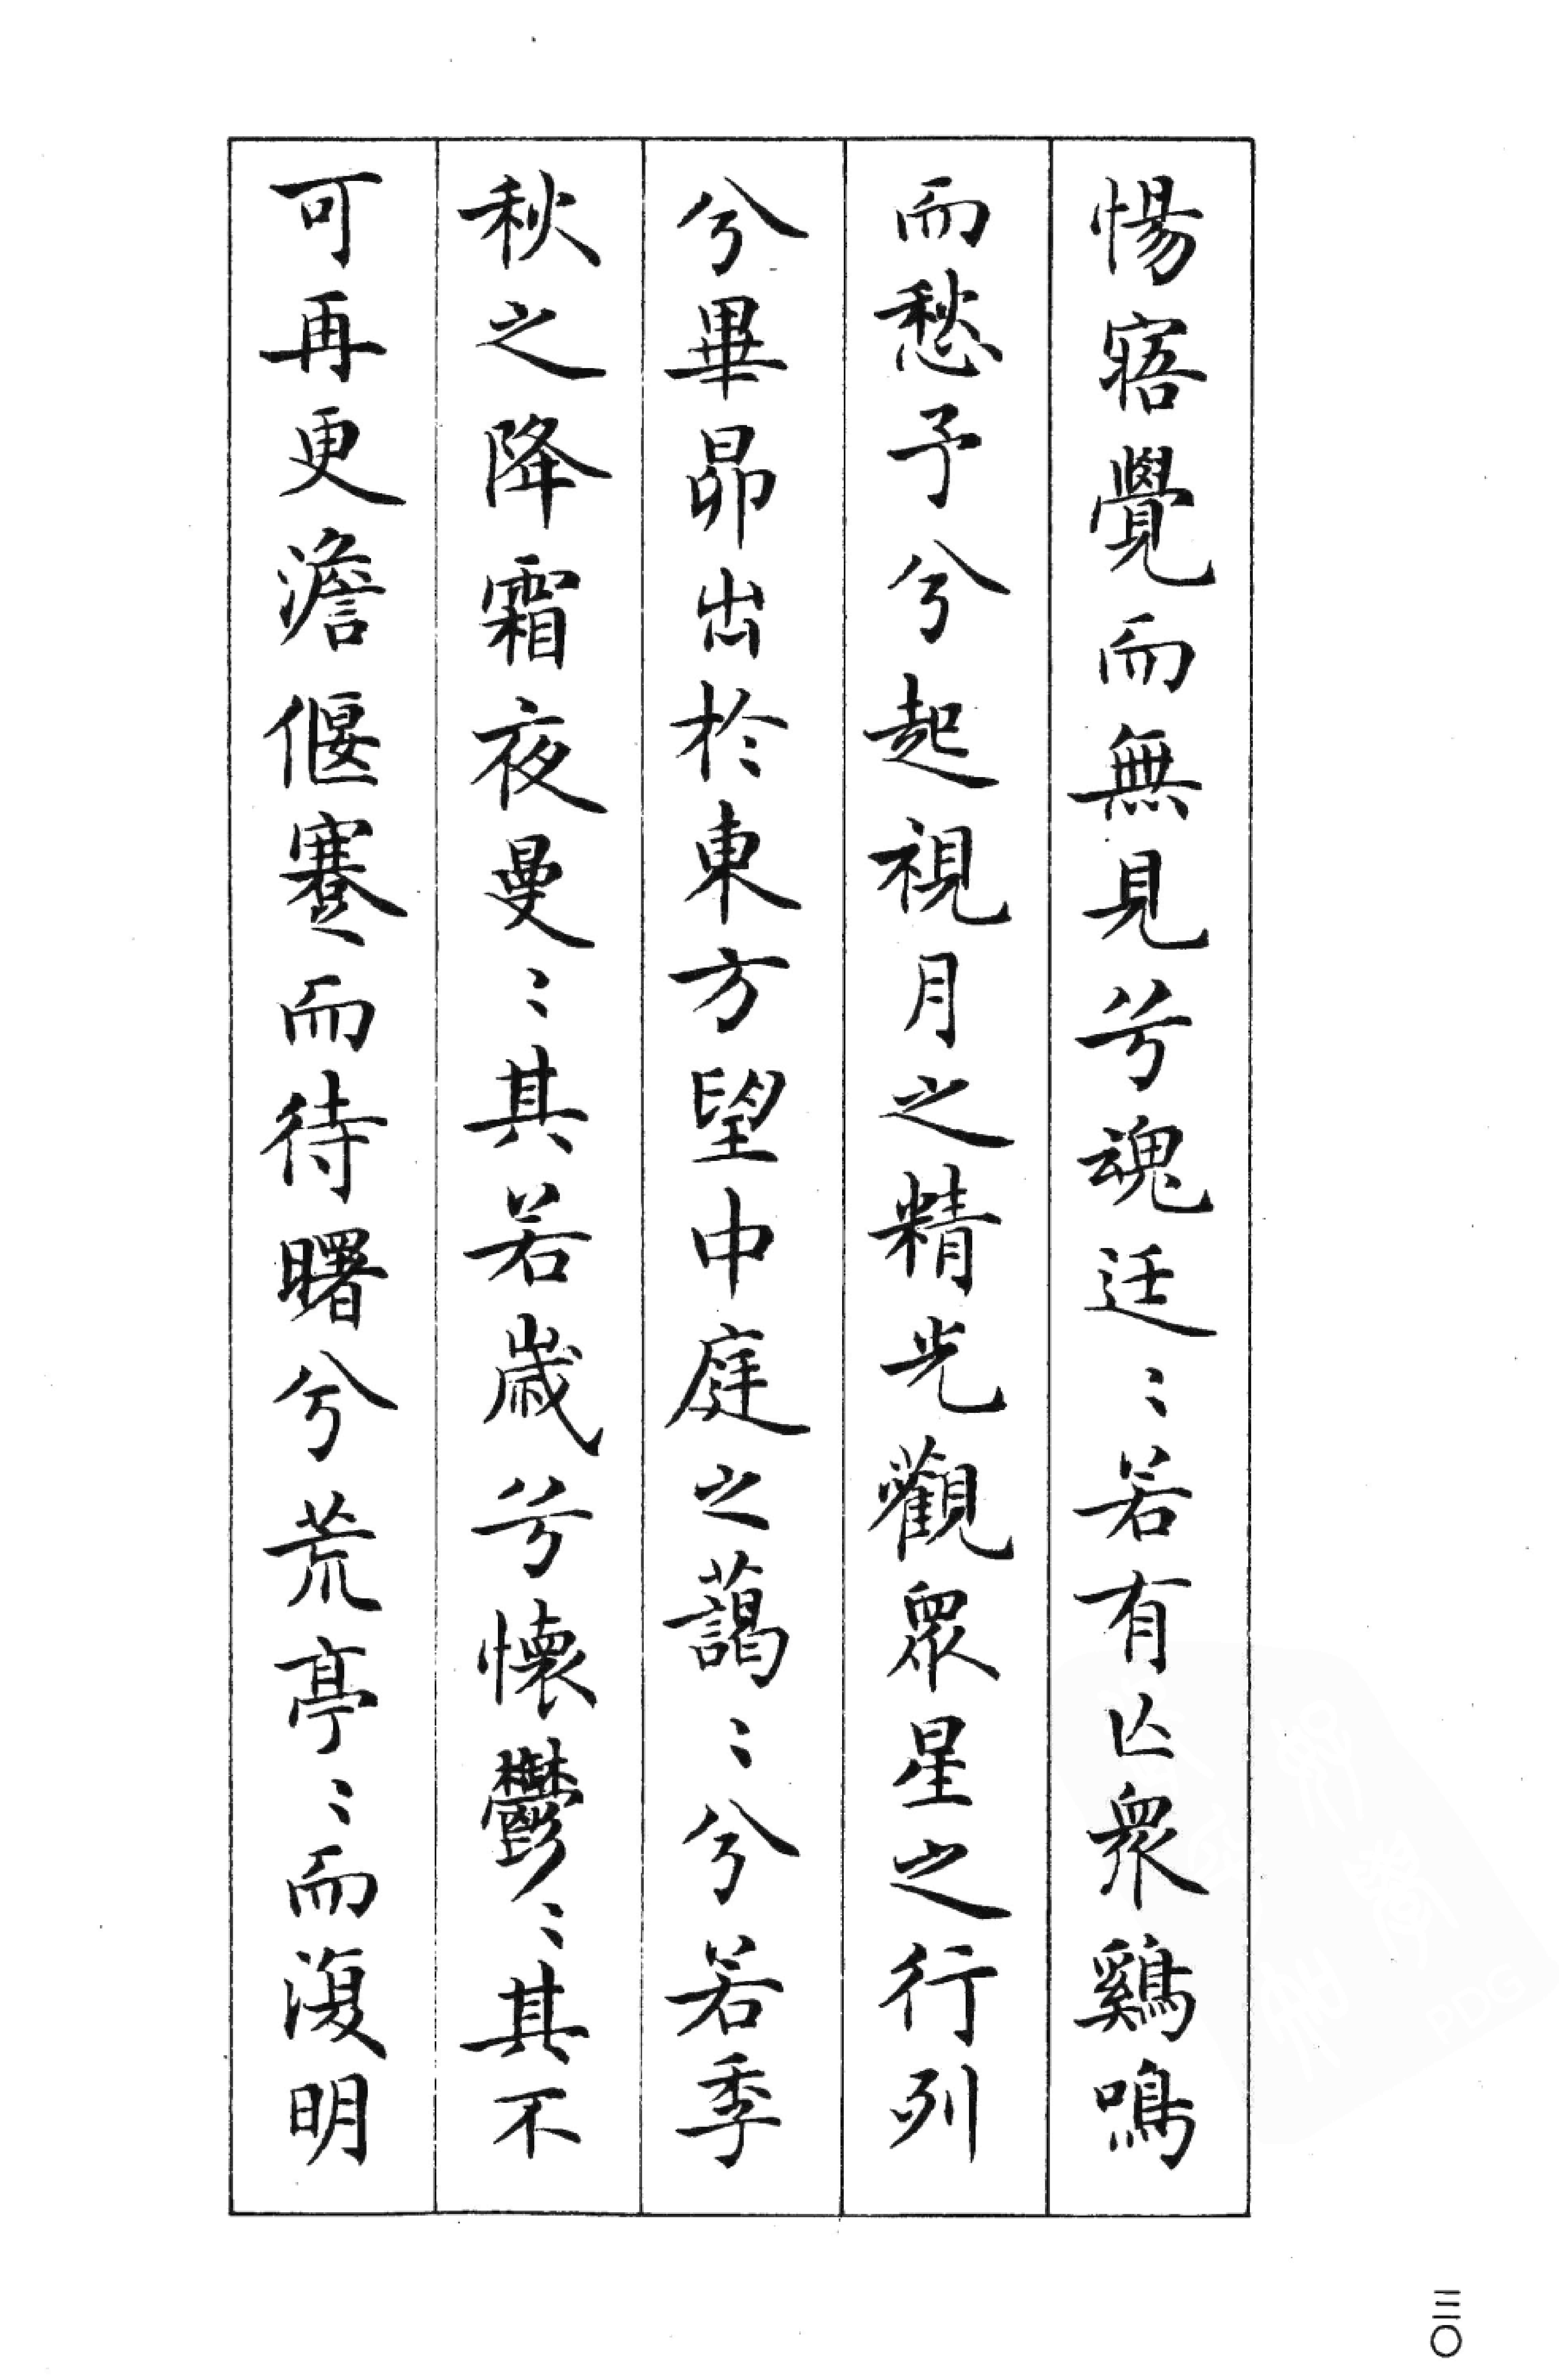 惕寤覺而無見兮魂迋〻若有亾衆鷄鳴
而愁予兮起視月之精光觀眾星之行列
兮畢昴出於東方望中庭之藹〻兮若季
秋之降霜夜曼〻其若歲兮懷鬱〻其不
可再更澹偃蹇而待曙兮荒亭〻而復明
三〇